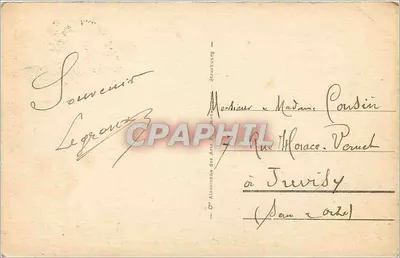 Souvenir
Legroux
Monsieur & Madame Cousin
7 Rue Horace-Vernet
à Juvisy
(Seine & Oise)
Cie Alsacienne des Arts
Strasbourg
CPAPHIL